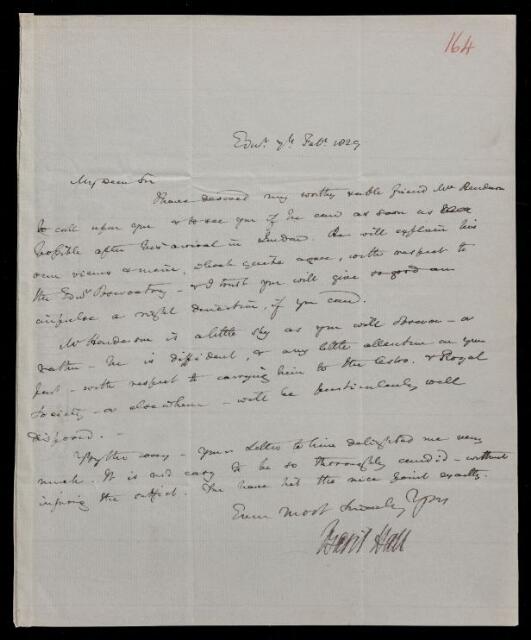 164
Edinr. 7th Feb. 1829
My Dear Sir
I have desired my worthy & able friend Mr Henderson
to call upon you & to see you if he can as soon as
possible after his arrival in London. He will explain his
own views & mine, which quite agree, with respect to
the Edinr Observatory - & I trust you will give so good an
impulse a right direction, if you can.
Mr Henderson is a little shy as you will observe - or
rather - he is diffident, & any little attention on your
part - with respect to carrying him to the Astro. & Royal
Society - or elsewhere - will be particularly well
disposed. -
By the way - your letter to him delighted me very
much. It is not easy to be so thoroughly candid - without
injuring the subject. You have hit the nice point exactly.
Ever most sincerely Yours
Basil Hall